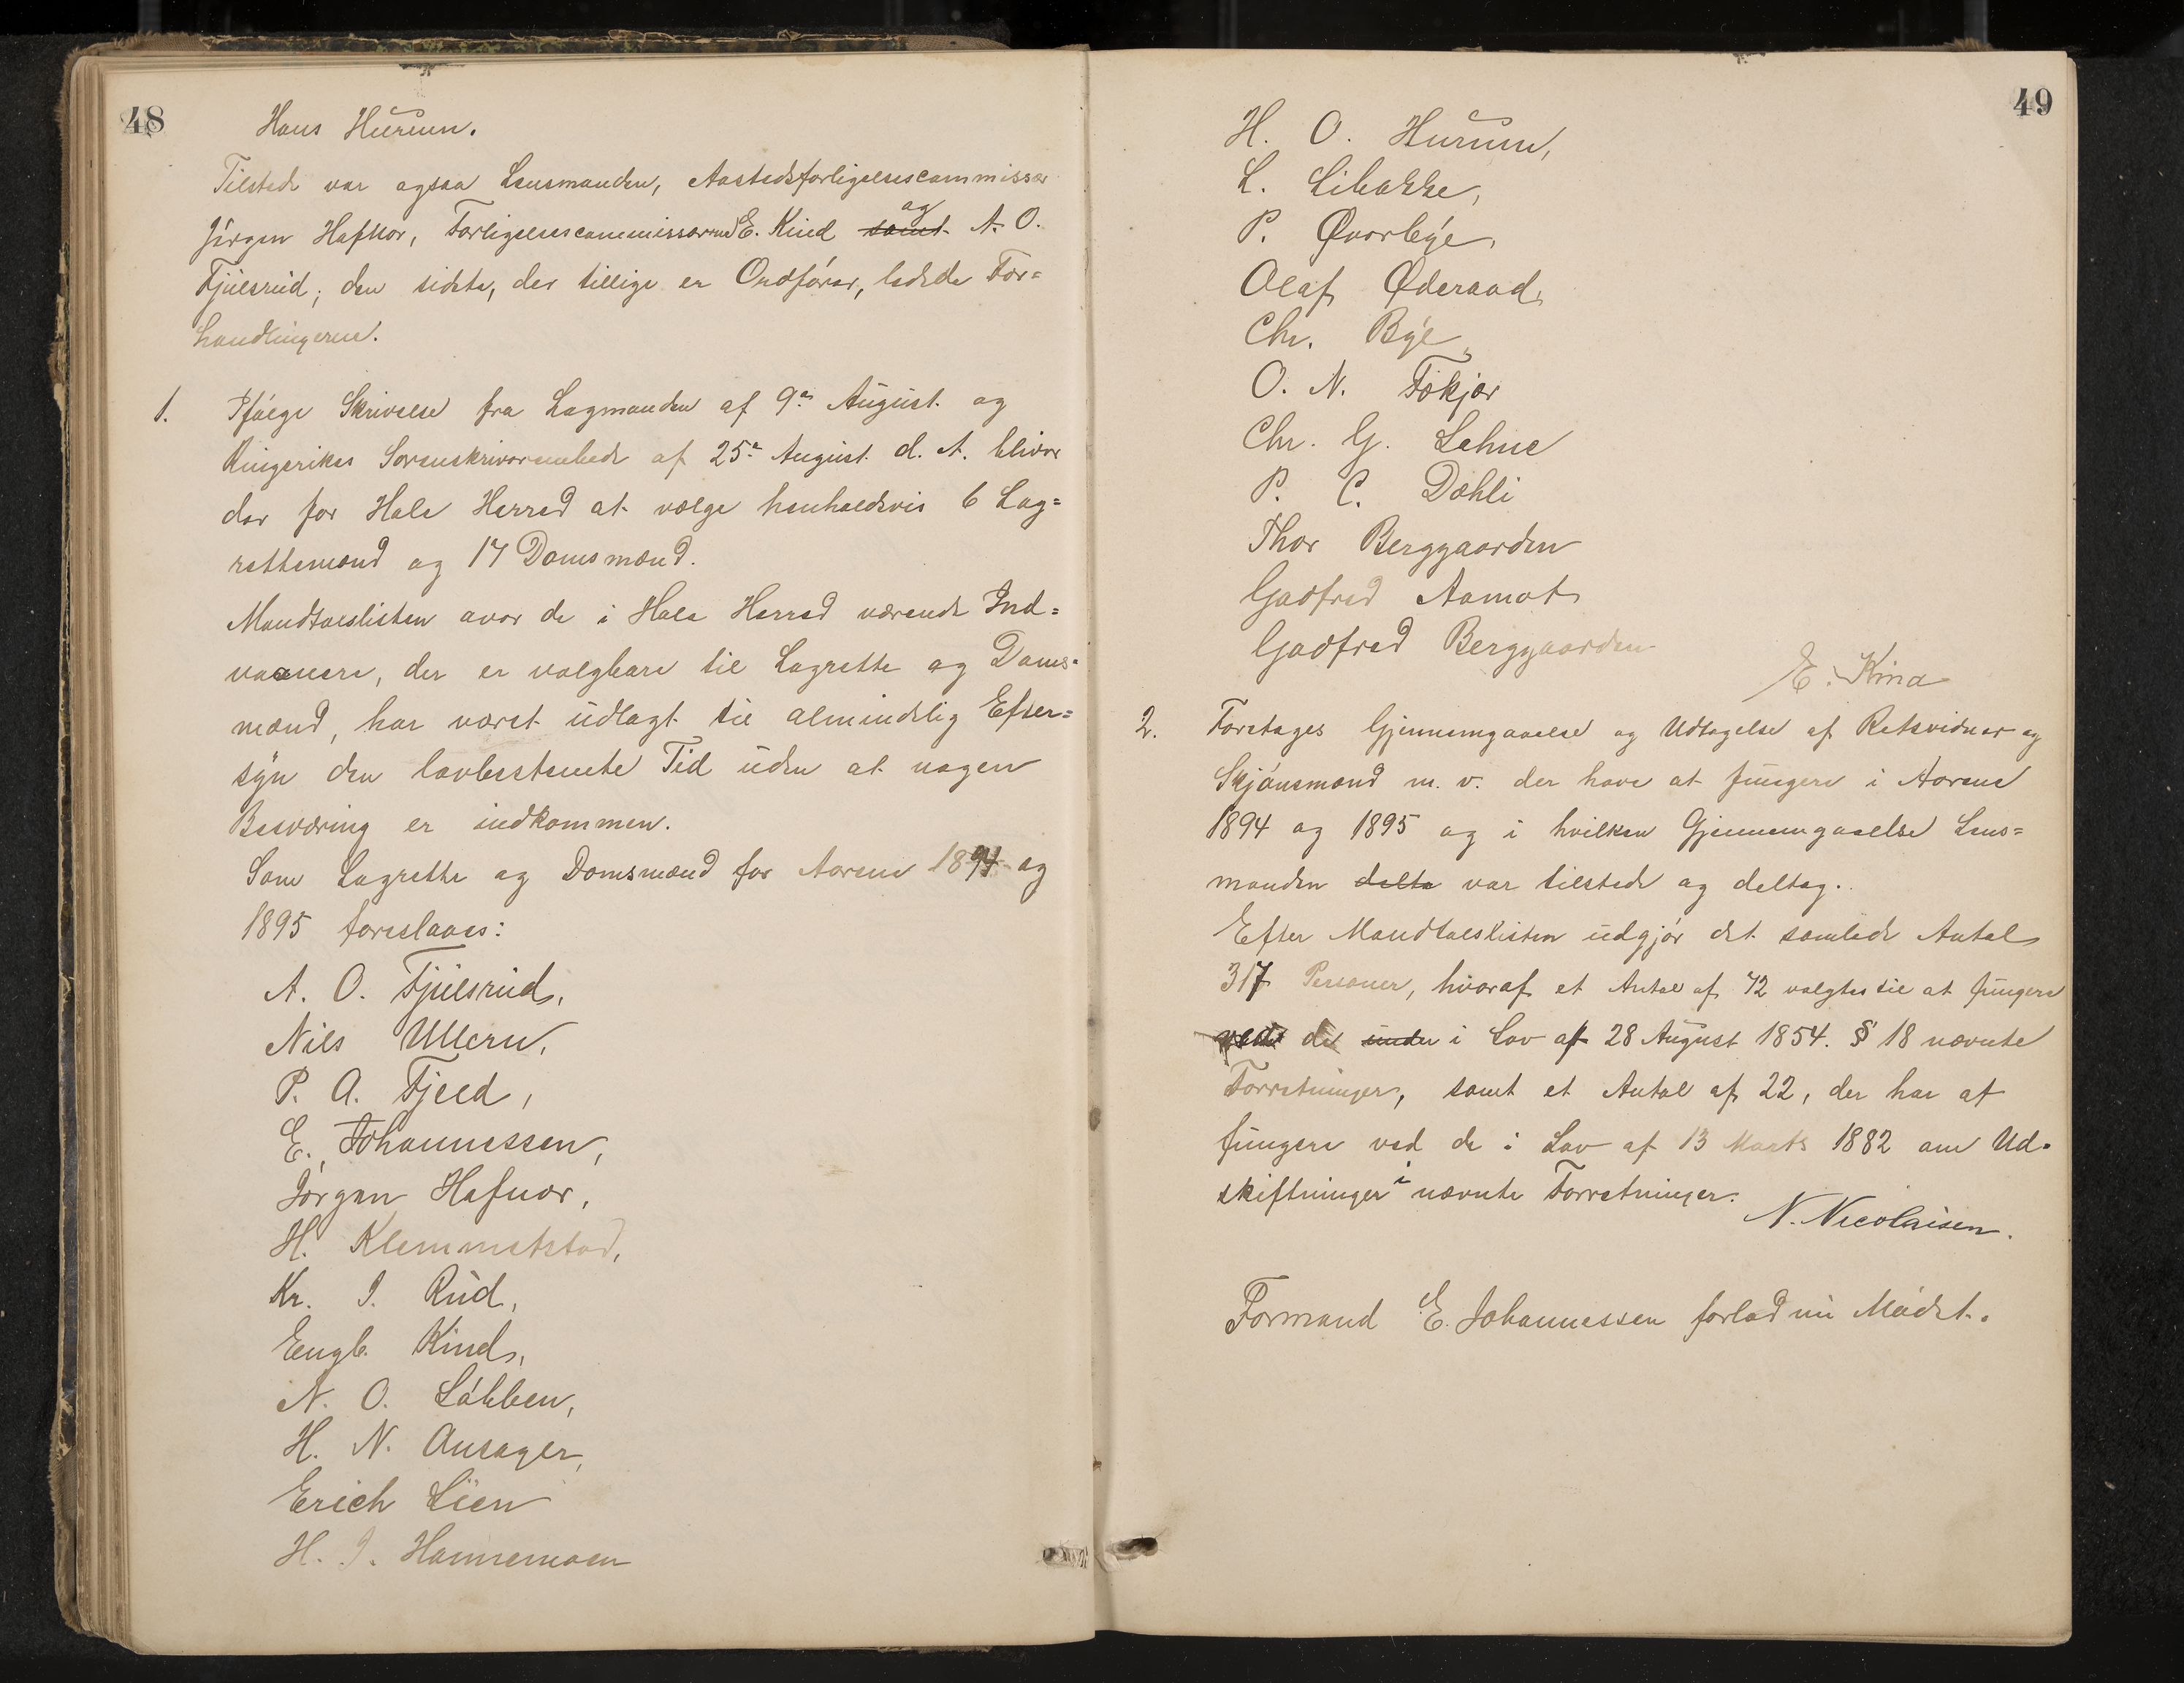 48
Hans Hurum.
Tilstede var ogsaa Lensmanden, Aastedsforligelsescommissær
Jörgen Hafnor, Forligelsescommissærerne E. Kind samt og A. O.
Fjulsrud; den sidste, der tillige er Ordförer, ledede For=
handlingerne.
1. Ifölge Skrivelse fra Lagmanden af 9de August og
Ringerikes Sorenskriverembede af 25de August d. A. bliver
der for Hole Herred at vælge henholdsvis 6 Lag=
rettemænd og 17 Domsmænd.
Mandtalslisten over de i Hole Herred værende Ind=
vaanere, der er valgbare til Lagrette og Doms=
mænd, har været udlagt til almindelig Efter=
syn den lovbestemte Tid uden at nogen
Besværing er indkommen.
Som Lagrette og Domsmænd for Aarene 1894 og
1895 foreslaaes:
A. O. Fjulsrud,
Nils Ullern,
P. A. Fjeld,
E. Johannessen,
Jörgen Hafnor,
H. Klemmetstad,
Kr. I. Rud,
Engb. Kind,
N. O. Löbben,
H. N. Onsager,
Erich Lien
H. I. Hannemoen
49
H. O. Hurum,
L. Libakke,
P. Øverbye,
Olaf Øderaad,
Chr. Bye,
O. N. Fekjær
Chr. G. Lehne
P. C. Dæhli
Thor Berggaarden
Godfred Aamot
Godfred Berggaarden
E. Kind
2. Foretages Gjennemgaaelse og Udtagelse af Retsvidner og
Skjönsmænd m. v. der have at fungere i Aarene
1894 og 1895 og i hvilken Gjennemgaaelse Lens=
manden delto var tilstede og deltog.
Efter Mandtalslisten udgjör det samlede Antal
317 Personer, hvoraf et Antal af 72 valgtes til at fungere
ved de under i Lov af 28 August 1854. § 18 nævnte
Forretninger, samt et Antal af 22, der har at
fungere ved de i Lov af 13 Marts 1882 om Ud=
skiftninger i nævnte Forretninger.
N. Nicolaisen.
Formand E. Johannessen forlod nu Mödet.